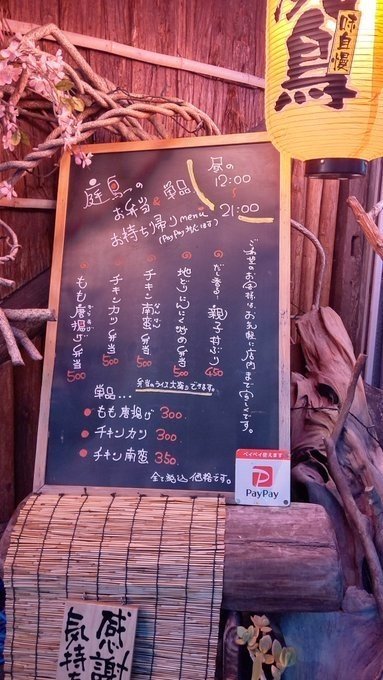 焼鳥
味自慢
庭鳥の
お弁当&単品
お持ち帰りmenu
(PayPay使えます)
昼の
12:00
〜
21:00
ご希望のお客様は、お気軽に店内まで宜しくです。
だし香る!親子丼ぶり 450
地どりにんにく焼の弁当 500
チキン南蛮弁当 500
なんばん
チキンカツ弁当 500
もも唐揚げ弁当 500
からあ
弁当のライス大盛りできます。
単品...
もも唐揚げ 300.
チキンカツ 300.
チキン南蛮 350.
全て税込価格です。
ペイペイ使えます
PayPay
感謝
気持ち